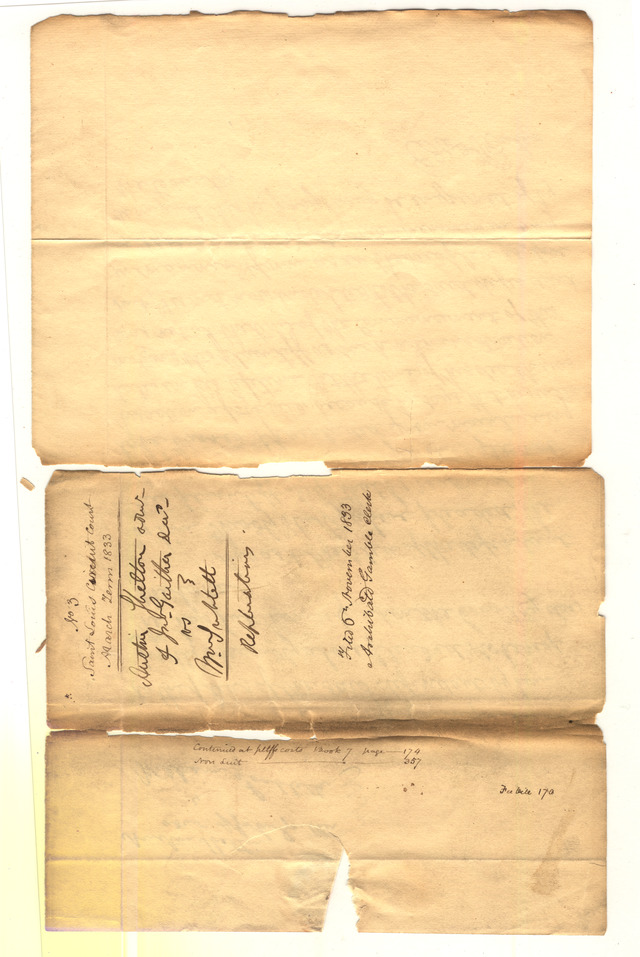 No 3
Saint Louis Circuit Court
March Term 1833
Shelton
& Gaither
vs
Wm Sublett
Replication
Filed 6th November 1833
Archibald Gamble Clerk
Continued at pltffs costs Book 7 page 174
Non Suit 357
Fee Bill 170